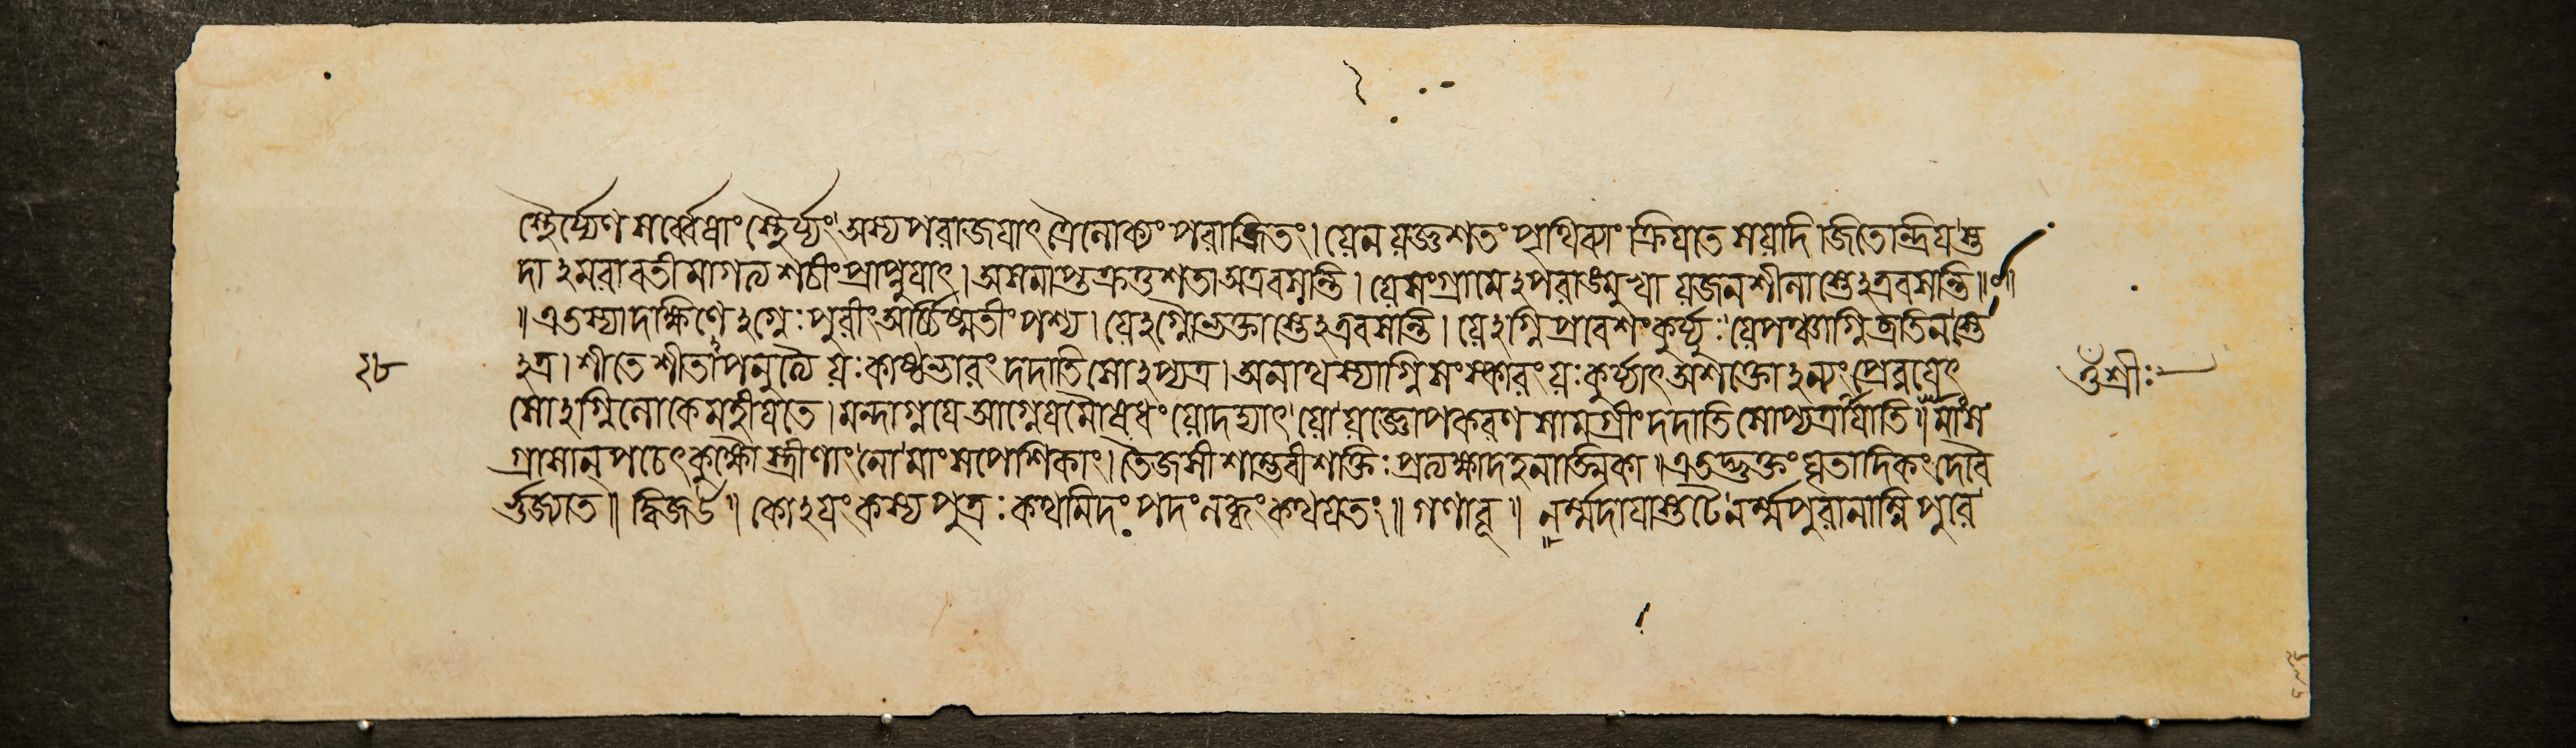 স্থৈর্য্যেণ সর্ব্বেষাং স্থৈর্য্যং অস্য পরাজয়াৎ ত্রৈলোক্যং পরাজিতং। যেন যজ্ঞশতং পৃথিব্যাং ক্রিয়তে স যদি জিতেন্দ্রিয়স্ত
দাঽমরাবতীমাগত্য শচীং প্রাপ্নুয়াৎ। অসমাপ্তক্রতুশতা অত্রবসন্তি। যে সংগ্রামেঽপরাঙ্মুখা যজনশীলাস্তেঽত্রবসন্তি॥
॥ এতস্যা দক্ষিণেঽগ্নেঃ পুরীং অর্চ্চিষ্মতীং পশ্য। যেঽগ্নৌ ভক্তাস্তেঽত্রবসন্তি। যেঽগ্নিপ্রবেশং কুর্য্যুঃ যে পঞ্চাগ্নিব্রতিনস্তে
২৮ ঽত্র। শীতে শীতাপনুত্যৈ যঃ কাষ্ঠভারং দদাতি সোঽপ্যত্র। অনাথস্যাগ্নিসংস্কারং যঃ কুর্য্যাৎ অশক্তোঽন্যং প্রেরয়েৎ শ্রীঃ
সোঽগ্নিলোকে মহীয়তে। মন্দাগ্নয়ে আগ্নেয়মৌষধং যো দদ্যাৎ যো যজ্ঞোপকরণ সামগ্রীং দদাতি সোপ্যত্রাযাতি॥ মাংস
গ্রাসান্ পচেৎ কুক্ষৌ স্ত্রীণাং নো মাংসপেশিকাং। তৈজসী শাম্ভবী শক্তিঃ প্রত্যক্ষা দহনাত্মিকা॥ এতদ্ভুক্তং ঘৃতাদিকং দেবৈ
র্ভুজ্যতে॥ দ্বিজউ॥ কোঽয়ং কস্য পুত্রঃ কথমিদং পদং লব্ধং কথয়েতং॥ গণাবূ॥ নর্ম্মদায়াস্তটে নর্ম্মপুরানাম্নি পুরে